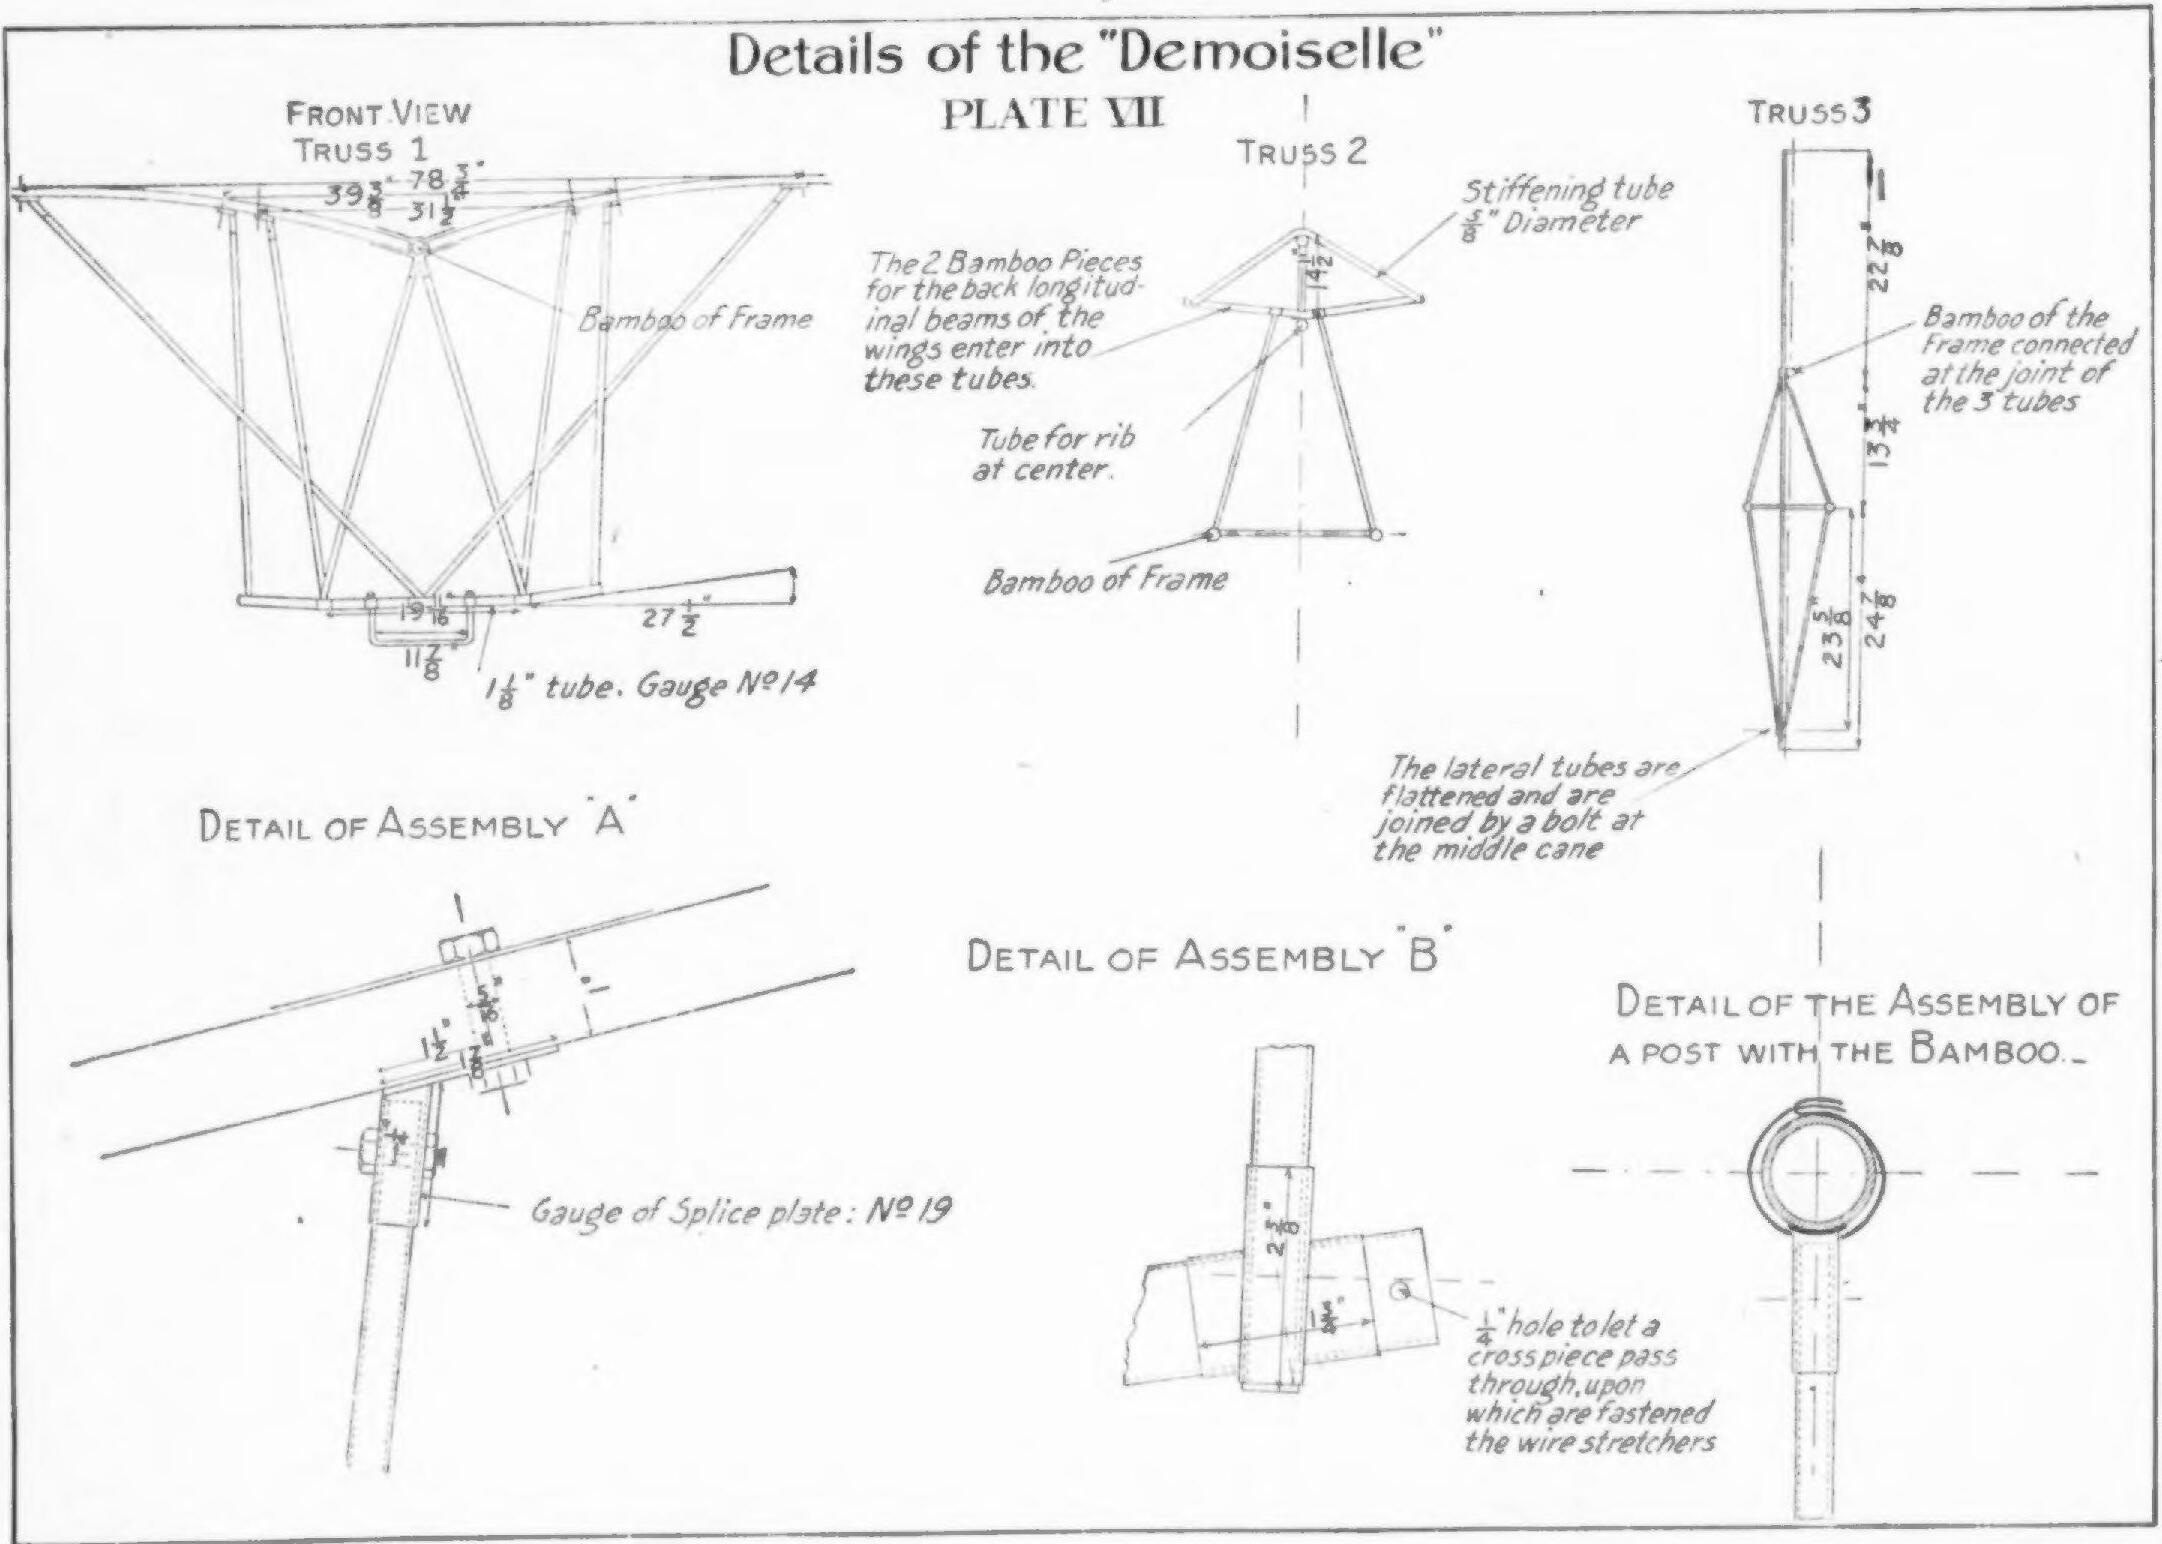 Details of the "Demoiselle"
PLATE VII
FRONT VIEW
TRUSS 1
78 3/4"
39 3/8"
31 1/2"
Bamboo of Frame
19 11/16"
11 7/8"
27 1/2"
1 1/8" tube. Gauge Nº 14
TRUSS 2
Stiffening tube
5/8" Diameter
14 1/2"
The 2 Bamboo Pieces
for the back longitud-
inal beams of the
wings enter into
these tubes.
Tube for rib
at center.
Bamboo of Frame
TRUSS 3
22 7/8"
Bamboo of the
Frame connected
at the joint of
the 3 tubes
13 3/4"
23 5/8"
24 7/8"
The lateral tubes are
flattened and are
joined by a bolt at
the middle cane
DETAIL OF ASSEMBLY "A"
5/16"
1"
1 1/2"
1 7/8"
1/4"
Gauge of Splice plate: Nº 19
DETAIL OF ASSEMBLY "B"
2 5/8"
1/4" hole to let a
cross piece pass
through, upon
which are fastened
the wire stretchers
DETAIL OF THE ASSEMBLY OF
A POST WITH THE BAMBOO._